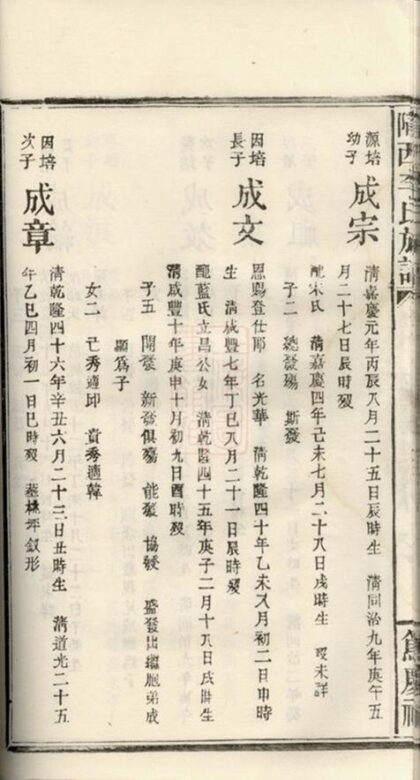 隴西李氏族譜
源培幼子 成宗
清嘉慶元年丙辰八月二十五日辰時生 清同治九年庚午五
月二十七日辰時歿
配宋氏 清嘉慶四年己未七月二十八日戌時生 歿未詳
子二 總發殤 斯發
因培長子 成文
恩賜登仕郎 名光華 清乾隆四十年乙未八月初二日申時
生 清咸豐七年丁巳八月二十一日辰時歿
配藍氏立昌公女 清乾隆四十五年庚子二月十八日戌時生
清咸豐十年庚申十月初九日酉時歿
子五 開發 新發俱殤 能發 協發 盛發出繼胞弟成
顯為子
女二 己秀適邱 貴秀適韓
因培次子 成章
清乾隆四十六年辛丑六月二十三日丑時生 清道光二十五
年乙巳四月初一日巳時歿 葬桃坪釵形